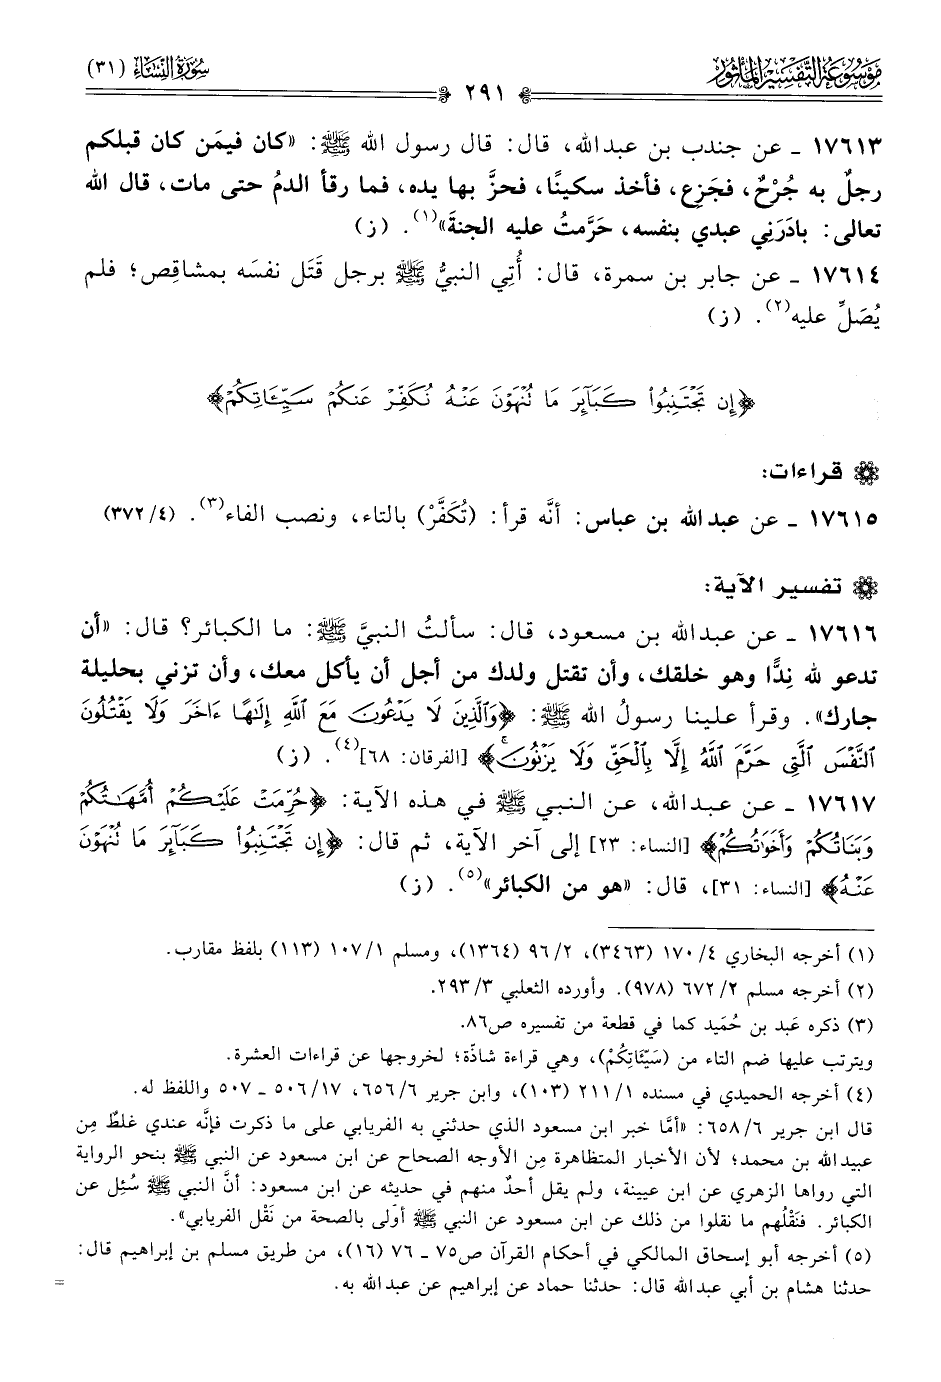 مَوْسُوعَة التَّفْسِير المَأْثُور
٢٩١
سُورَةُ النِّسَاء (٣١)
١٧٦١٣ ـ عن جندب بن عبدالله، قال: قال رسول الله ﷺ: «كان فيمَن كان قبلكم
رجلٌ به جُرْحٌ، فجَزِع، فأخذ سكينًا، فحزَّ بها يده، فما رقأ الدمُ حتى مات، قال الله
تعالى: بادَرَنِي عبدي بنفسه، حَرَّمتُ عليه الجنةَ»(١). (ز)
١٧٦١٤ ـ عن جابر بن سمرة، قال: أُتِي النبيُّ ﷺ برجل قَتَل نفسَه بمشاقِص؛ فلم
يُصَلِّ عليه(٢). (ز)
﴿إِن تَجْتَنِبُوا۟ كَبَآئِرَ مَا تُنْهَوْنَ عَنْهُ نُكَفِّرْ عَنكُمْ سَيِّـَٔاتِكُمْ﴾
قراءات:
١٧٦١٥ ـ عن عبدالله بن عباس: أنَّه قرأ: (تُكَفَّرْ) بالتاء، ونصب الفاء(٣). (٣٧٢/٤)
تفسير الآية:
١٧٦١٦ ـ عن عبدالله بن مسعود، قال: سألتُ النبيَّ ﷺ: ما الكبائر؟ قال: «أن
تدعو لله نِدًّا وهو خلقك، وأن تقتل ولدك من أجل أن يأكل معك، وأن تزني بحليلة
جارك». وقرأ علينا رسولُ الله ﷺ: ﴿وَٱلَّذِينَ لَا يَدْعُونَ مَعَ ٱللَّهِ إِلَـٰهًا ءَاخَرَ وَلَا يَقْتُلُونَ
ٱلنَّفْسَ ٱلَّتِى حَرَّمَ ٱللَّهُ إِلَّا بِٱلْحَقِّ وَلَا يَزْنُونَ ۚ﴾ [الفرقان: ٦٨](٤). (ز)
١٧٦١٧ ـ عن عبدالله، عن النبي ﷺ في هذه الآية: ﴿حُرِّمَتْ عَلَيْكُمْ أُمَّهَـٰتُكُمْ
وَبَنَاتُكُمْ وَأَخَوَٰتُكُمْ﴾ [النساء: ٢٣] إلى آخر الآية، ثم قال: ﴿إِن تَجْتَنِبُوا۟ كَبَآئِرَ مَا تُنْهَوْنَ
عَنْهُ﴾ [النساء: ٣١]، قال: «هو من الكبائر»(٥). (ز)
(١) أخرجه البخاري ٤/ ١٧٠ (٣٤٦٣)، ٢/ ٩٦ (١٣٦٤)، ومسلم ١/ ١٠٧ (١١٣) بلفظ مقارب.
(٢) أخرجه مسلم ٢/ ٦٧٢ (٩٧٨). وأورده الثعلبي ٣/ ٢٩٣.
(٣) ذكره عَبد بن حُمَيد كما في قطعة من تفسيره ص٨٦.
ويترتب عليها ضم التاء من (سَيِّئَاتُكُمْ)، وهي قراءة شاذّة؛ لخروجها عن قراءات العشرة.
(٤) أخرجه الحميدي في مسنده ١/ ٢١١ (١٠٣)، وابن جرير ٦/ ٦٥٦، ١٧/ ٥٠٦ ـ ٥٠٧ واللفظ له.
قال ابن جرير ٦/ ٦٥٨: «أمَّا خبر ابن مسعود الذي حدثني به الفريابي على ما ذكرت فإنَّه عندي غلطٌ مِن
عبيدالله بن محمد؛ لأن الأخبار المتظاهرة مِن الأوجه الصحاح عن ابن مسعود عن النبي ﷺ بنحو الرواية
التي رواها الزهري عن ابن عيينة، ولم يقل أحدٌ منهم في حديثه عن ابن مسعود: أنَّ النبي ﷺ سُئِل عن
الكبائر. فنَقْلُهم ما نقلوا من ذلك عن ابن مسعود عن النبي ﷺ أوَلى بالصحة من نَقْل الفريابي».
(٥) أخرجه أبو إسحاق المالكي في أحكام القرآن ص٧٥ ـ ٧٦ (١٦)، من طريق مسلم بن إبراهيم قال:
حدثنا هشام بن أبي عبدالله قال: حدثنا حماد عن إبراهيم عن عبدالله به.
=